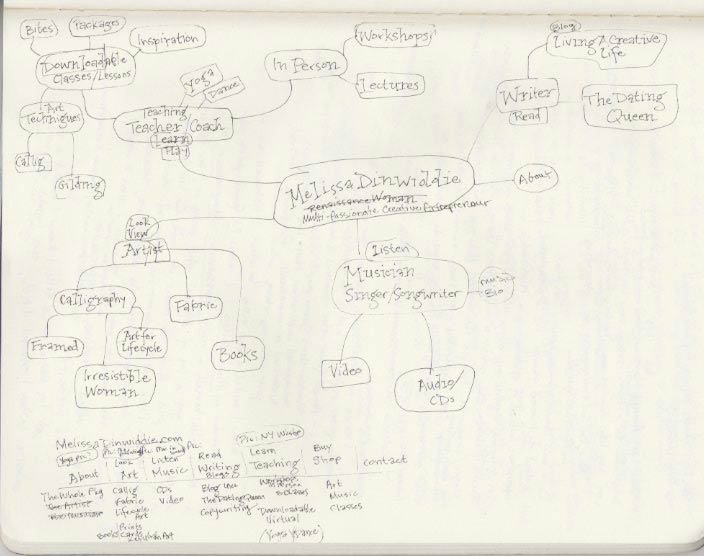 Bites
Packages
Inspiration
Downloadable
Classes/Lessons
Art
Techniques
Callig
Gilding
Yoga
Dance
Teaching
Teacher/Coach
Learn
Play
In Person
Workshops
Lectures
Blog
Living A Creative
Life
Writer
Read
The Dating
Queen
Melissa Dinwiddie
Renaissance Woman
Multi-Passionate Creative Entrepreneur
About
Look
View
Artist
Calligraphy
Fabric
Books
Framed
Art for
Lifecycle
Irresistible
Woman
Listen
Musician
Singer/Songwriter
music
Bio
Video
Audio/
CDs
MelissaDinwiddie.com
Pic: NY Write
Look
Listen
Read
Learn
Buy
About
Art
Music
Writing
Teaching
Shop
Contact
The Whole Pkg
The Artist
Callig
Fabric
Lifecycle
Art
Prints
Books Cards
CDs
Video
Blog
The Dating Queen
Copywriting
Downloadable
Virtual
(Yoga & Dance)
Art
Music
Classes